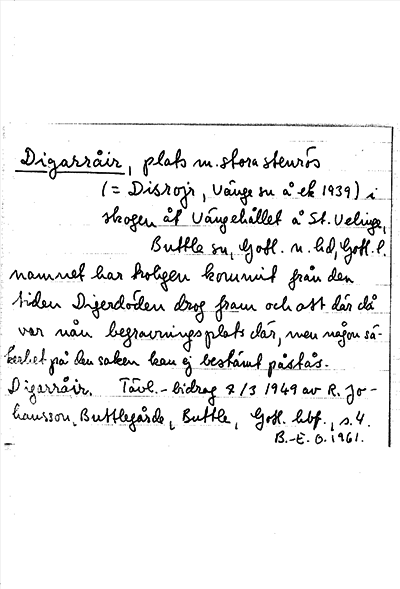 Digarråir, plats m. stora stenrös
(= Disrojr, Vänge sn å ek 1939) i
skogen åt Vängehållet å St. Velinge,
Buttle sn, Gotl. n. hd, Gotl. l.
namnet har troligen kommit från den
tiden Digerdöden drog fram och att där då
var nån begravningsplats där, men någon sä-
kerhet på den saken kan ej bestämt påstås.
Digarråir. Tävl.-bidrag 2/3 1949 av R. Jo-
hansson, Buttlegårde, Buttle, Gotl. hbf., s. 4.
B.-E. O. 1961.